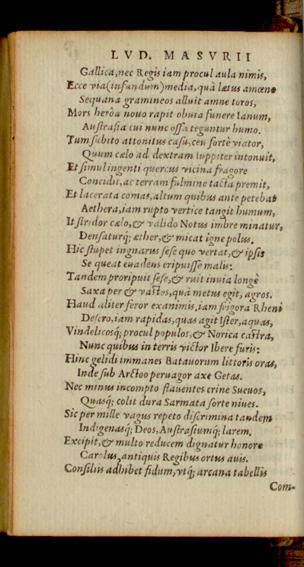 LVD. MASVRII
Gallica, nec Regis iam procul aula nimis,
Ecce via (infandum) media, quà lætus amœno
Sequana gramineos alluit amne toros,
Mors heroa nouo rapit obuia funere lanum,
Austrasia cui nunc ossa teguntur humo.
Tum subito attonitus casu, ceu fortè viator,
Quum cælo ad dextram Iuppiter intonuit,
Et simul ingenti quercus vicina fragore
Concidit, ac terram fulmine tacta premit,
Et lacerata comas, altum quibus ante petebat
Aethera, iam rupto vertice tangit humum,
It stridor cælo, & valido Notus imbre minatur,
Densaturq; æther, & micat igne polus.
Hic stupet ingnarus sese quo vertat, & ipsis
Se queat euadens eripuisse malis:
Tandem proripuit sese, & ruit inuia longè
Saxa per & vastos, quà metus egit, agros.
Haud aliter feror exanimis, iam frigora Rheni
Desero, iam rapidas, quas agit Ister, aquas,
Vindelicosq; procul populos, & Norica castra,
Nunc quibus in terris victor Ibere furis:
Hinc gelidi immanes Batauorum littoris oras,
Inde sub Arctoo peruagor axe Getas.
Nec minus incompto flauentes crine Sueuos,
Quasq; colit dura Sarmata sorte niues.
Sic per mille vagus repeto discrimina tandem
Indigenasq; Deos, Austrasiumq; larem.
Excipit, & multo reducem dignatur honore
Carolus antiquis Regibus ortus auis.
Consiliis adhibet fidum, vtq; arcana tabellis
Com-